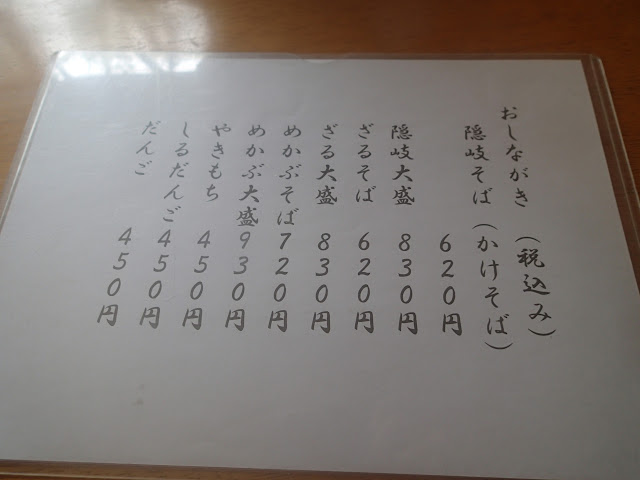 おしながき（税込み）
隠岐そば（かけそば）
620円
隠岐大盛 830円
ざるそば 620円
ざる大盛 830円
めかぶそば 720円
めかぶ大盛 930円
やきもち 450円
しるだんご 450円
だんご 450円